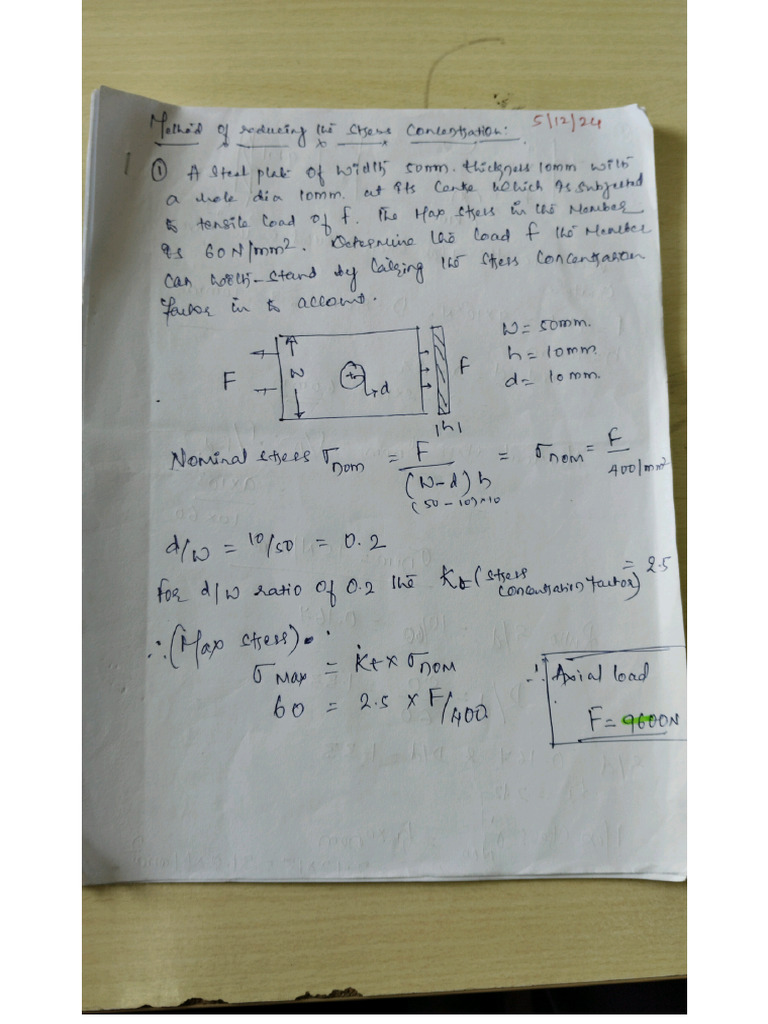 Method of reducing the stress concentration: 5/12/24
1 ① A steel plate of width 50mm. thickness 10mm with
a hole dia 10mm. at its centre which is subjected
to tensile load of f. The Max stress in the Member
is 60N/mm². Determine the load f the Member
can with-stand by taking the stress concentration
factor in to account.
W = 50mm.
h = 10mm.
d = 10mm.
F W d F
|h|
Nominal stress σnom = F/(W-d)h = σnom = F/400/mm²
(50-10)×10
d/W = 10/50 = 0.2
For d/W ratio of 0.2 the Kt (stress concentration factor) = 2.5
∴ (Max stress).
σMax = Kt × σnom
60 = 2.5 × F/400
∴ Axial load
F = 9600N